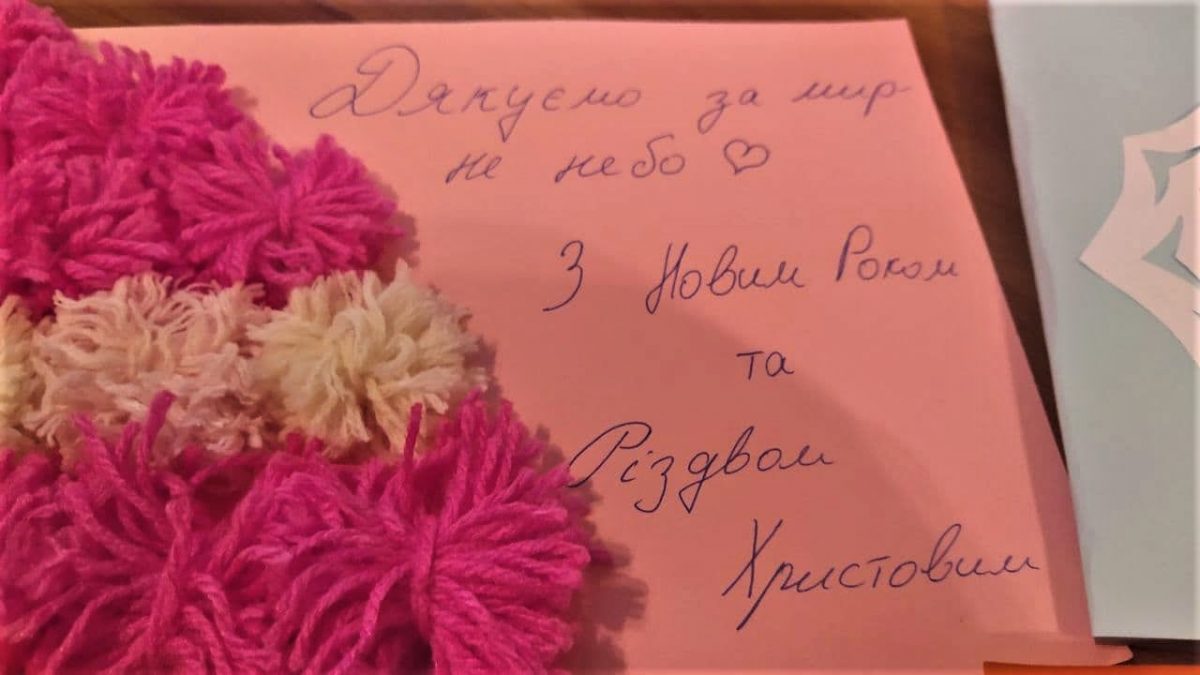 Дякуємо за мир
не небо ♡
З Новим Роком
та
Різдвом
Христовим